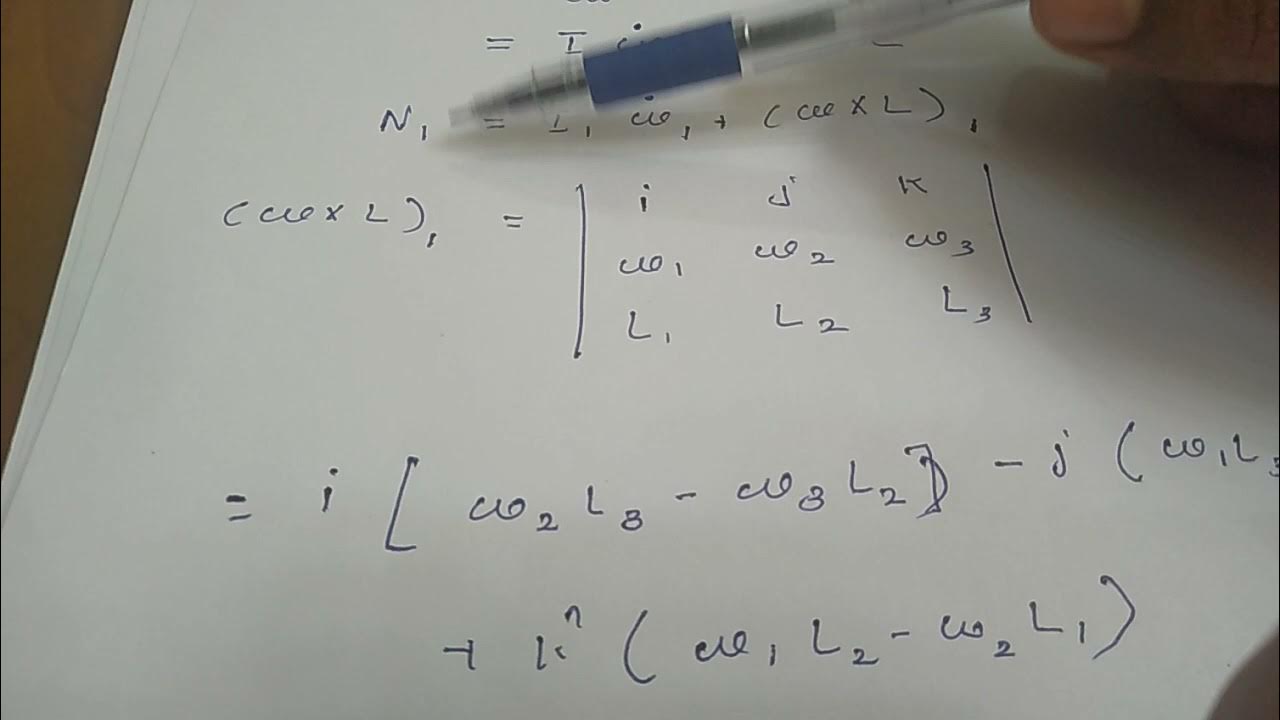 = I ω̇
N₁ = I₁ ω̇₁ + (ω × L)₁
(ω × L)₁ = | i j k |
| ω₁ ω₂ ω₃ |
| L₁ L₂ L₃ |
= i [ ω₂ L₃ - ω₃ L₂ ] - j ( ω₁ L₃
+ k̂ ( ω₁ L₂ - ω₂ L₁ )